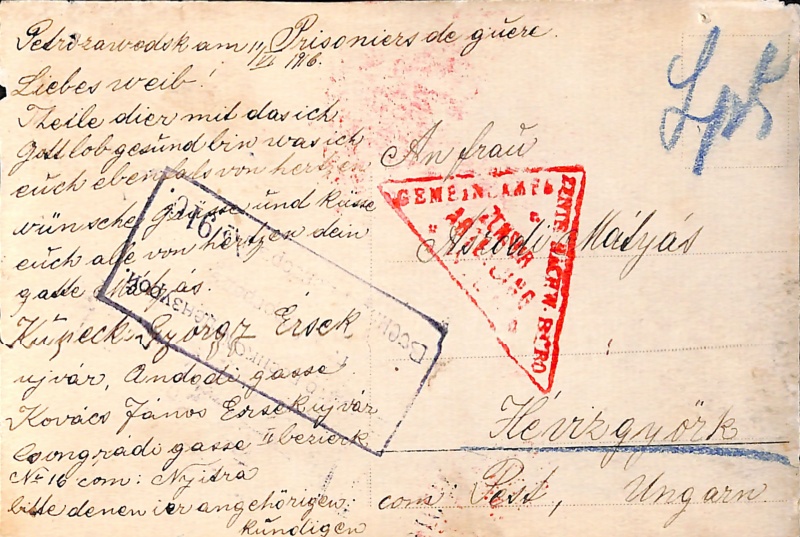 Petrozawodsk am 11/VI. 1916. Prisoniers de guere.
Liebes weib!
Theile dier mit das ich
Gott lob gesund bin was ich
euch ebenfals von hertzen
wünsche, Grüsse und Küsse
euch alle von hertzen dein
gatte Mátyás.
György Érsek
ujvár, Andodi gasse
Kovács János Ersekujvár
Csongrádi gasse II bezierk
No 16 com: Nyitra
bitte denen ier angehörigen
kündigen
Lpk
An frau
Asbodi Mátyás
Hévizgyörk
com Pest, Ungarn
GEMEINSAMES
ZENTR. NACHW. BÜRO
ZENSUR
ABTEILUNG